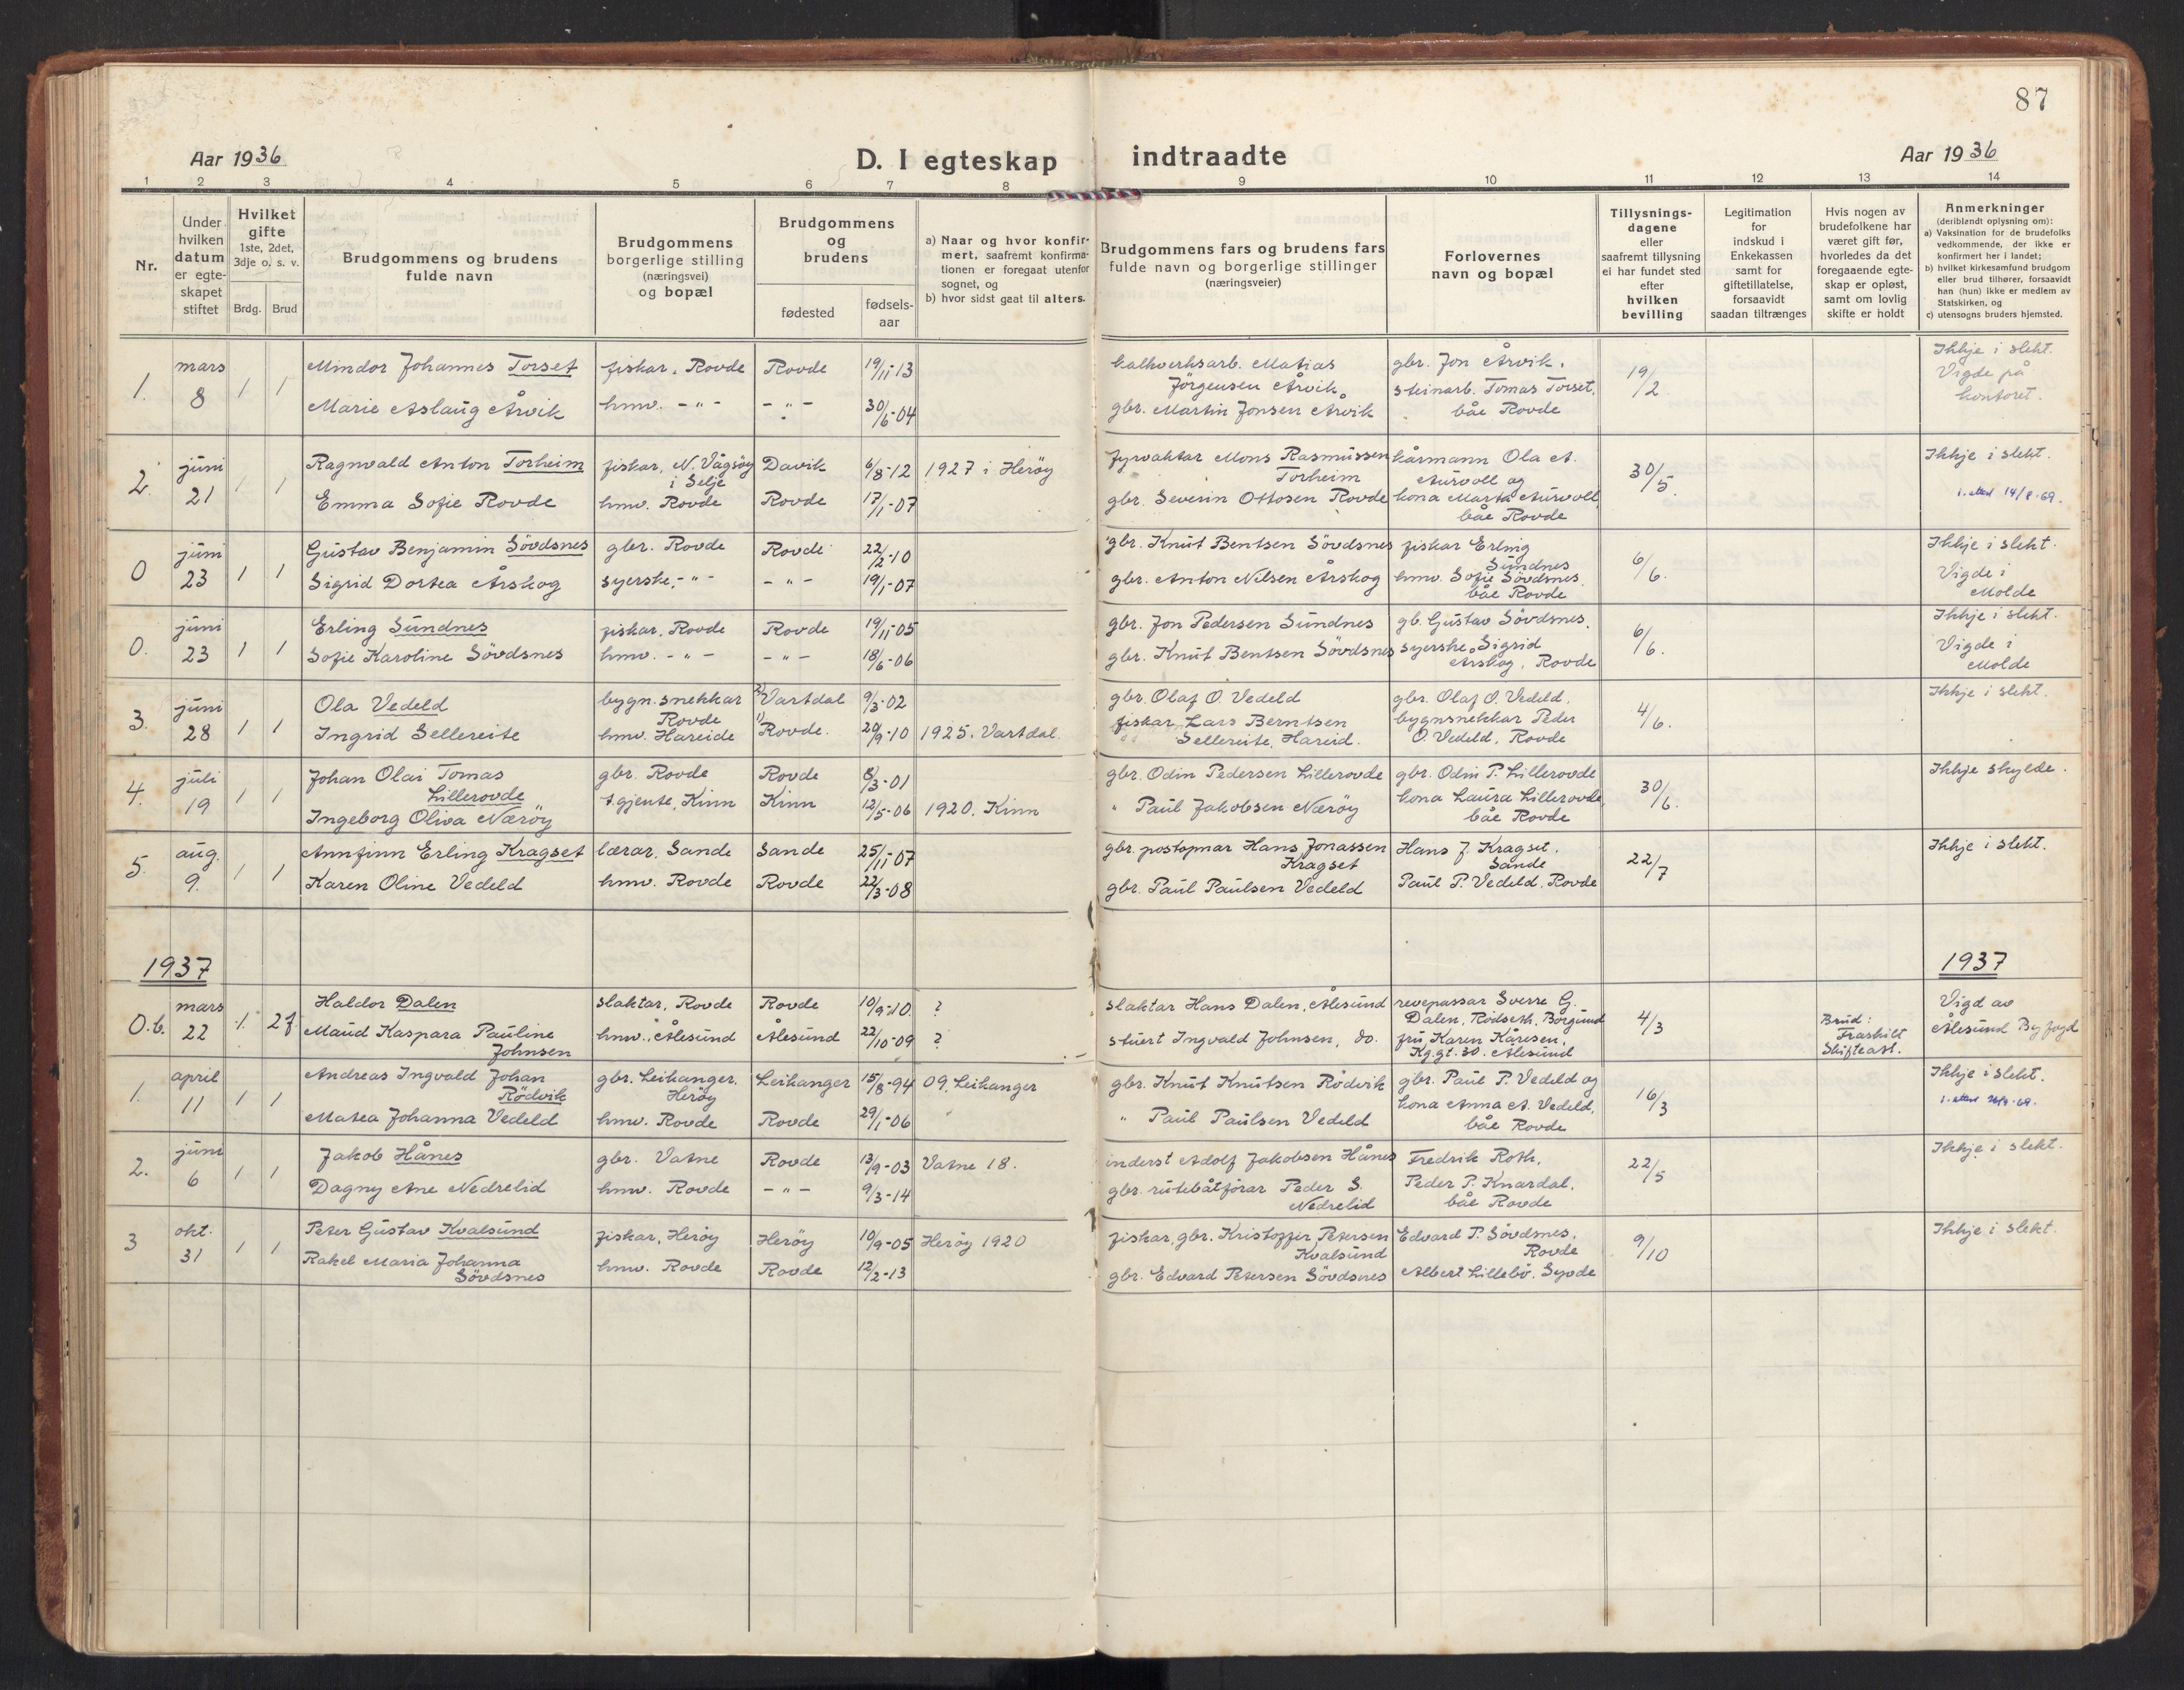 87
Aar 1936
D. I egteskap indtraadte
Aar 1936
1 2 3 4 5 6 7 8 9 10 11 12 13 14
Nr.
Under
hvilken
datum
er egte-
skapet
stiftet
Hvilket
gifte
1ste, 2det,
3dje o. s. v.
Brdg. Brud
Brudgommens og brudens
fulde navn
Brudgommens
borgerlige stilling
(næringsvei)
og bopæl
Brudgommens
og
brudens
fødested
fødsels-
aar
a) Naar og hvor konfir-
mert, saafremt konfirma-
tionen er foregaat utenfor
sognet, og
b) hvor sidst gaat til alters.
Brudgommens fars og brudens fars
fulde navn og borgerlige stillinger
(næringsveier)
Forlovernes
navn og bopæl
Tillysnings-
dagene
eller
saafremt tillysning
ei har fundet sted
efter
hvilken
bevilling
Legitimation
for
indskud i
Enkekassen
samt for
giftetillatelse,
forsaavidt
saadan tiltrænges
Hvis nogen av
brudefolkene har
været gift før,
hvorledes da det
foregaaende egte-
skap er opløst,
samt om lovlig
skifte er holdt
Anmerkninger
(deriblandt oplysning om):
a) Vaksination for de brudefolks
vedkommende, der ikke er
konfirmert her i landet;
b) hvilket kirkesamfund brudgom
eller brud tilhører, forsaavidt
han (hun) ikke er medlem av
Statskirken, og
c) utensogns bruders hjemsted.
1. mars 8 1 1
Mindor Johannes Torset fiskar, Rovde Rovde 19/11-13
Marie Aslaug Årvik hmv. -"- -"- 30/6-04
kalkverksarb. Matias
Jörgensen Årvik
gbr. Martin Jonsen Årvik
gbr. Jon Årvik.
steinarb. Tomas Torset,
båe Rovde
19/2
Ikkje i slekt.
Vigde på
kontoret.
2. juni 21 1 1
Ragnvald Anton Torheim fiskar, N. Vågsöy
i Selje Davik 6/8-12 1927 i Heröy
Emma Sofie Rovde hmv. Rovde Rovde 17/1-07
fyrvaktar Mons Rasmussen
Torheim
gbr. Severin Ottosen Rovde
kårmann Ola A.
Aurvoll og
kona Marta Aurvoll,
båe Rovde
30/5.
Ikkje i slekt.
1. attest 14/8-69.
0 juni 23 1 1
Gustav Benjamin Sövdsnes gbr. Rovde Rovde 22/2-10
Sigrid Dortea Årskog syerske, -"- -"- 19/1-07
gbr. Knut Bentsen Sövdsnes
gbr. Anton Nilsen Årskog
fiskar Erling
Sundnes
hmv. Sofie Sövdsnes,
båe Rovde
6/6.
Ikkje i slekt.
Vigde i
Molde
0. juni 23 1 1
Erling Sundnes fiskar, Rovde Rovde 19/11-05
Sofie Karoline Sövdsnes hmv. -"- -"- 18/6-06
gbr. Jon Pedersen Sundnes
gbr. Knut Bentsen Sövdsnes
gb. Gustav Sövdsnes,
syerske Sigrid
Årskog, Rovde
6/6.
Ikkje i slekt.
Vigde i
Molde
3. juni 28 1 1
Ola Vedeld bygn.snekkar
Rovde 2) Vartdal 9/3-02
Ingrid Sellereite hmv. Hareide 1) Rovde. 20/9-10 1925. Vartdal.
gbr. Olaf O. Vedeld
fiskar Lars Berntsen
Sellereite, Hareid.
gbr. Olaf O. Vedeld,
bygnsnekkar Peder
O. Vedeld, Rovde
4/6.
Ikkje i slekt.
4. juli 19 1 1
Johan Olai Tomas
Lillerovde gbr. Rovde Rovde 8/3-01
Ingeborg Oliva Næröy t.gjente, Kinn Kinn 12/5-06 1920. Kinn
gbr. Odin Pedersen Lillerovde
" Paul Jakobsen Næröy
gbr. Odin P. Lillerovde
kona Laura Lillerovde,
båe Rovde
30/6.
Ikkje skylde.
5. aug. 9. 1 1
Annfinn Erling Kragset lærar, Sande Sande 25/11-07
Karen Oline Vedeld hmv. Rovde Rovde 22/3-08
gbr. postopnar Hans Jonassen
Kragset
gbr. Paul Paulsen Vedeld
Hans J. Kragset,
Sande
Paul P. Vedeld, Rovde
22/7
Ikkje i slekt.
1937
1937
0.b. mars 22 1. 2f
Haldor Dalen slaktar, Rovde Rovde 10/9-10. ?
Maud Kaspara Pauline
Johnsen hmv., Ålesund Ålesund 22/10-09 ?
slaktar Hans Dalen, Ålesund
stuert Ingvald Johnsen, do.
revepassar Sverre G.
Dalen, Rödseth, Borgund
fru Karen Kåresen,
Kg.gt. 30. Ålesund
4/3
Brud:
Fraskilt
Skifteatt.
Vigd av
Ålesund Byfogd
1. april 11 1 1
Andreas Ingvald Johan
Rödvik gbr. Leikanger,
Heröy Leikanger 15/8-94 09. Leikanger
Matea Johanna Vedeld hmv. Rovde Rovde 29/1-06
gbr. Knut Knutsen Rödvik
" Paul Paulsen Vedeld
gbr. Paul P. Vedeld og
kona Anna A. Vedeld,
båe Rovde
16/3
Ikkje i slekt.
2. juni 6 1 1
Jakob Hånes gbr. Vatne Rovde 13/9-03 Vatne 18.
Dagny Ane Nedrelid hmv. Rovde -"- 9/3-14
inderst Adolf Jakobsen Hånes
gbr. rutebåtförar Peder S.
Nedrelid
Fredrik Roth,
Peder P. Knardal,
båe Rovde
22/5
Ikkje i slekt.
3 okt. 31 1 1
Peter Gustav Kvalsund fiskar, Heröy Heröy 10/9-05 Heröy 1920
Rakel Maria Johanna
Sövdsnes hmv. Rovde Rovde 12/2-13
fiskar, gbr. Kristoffer Petersen
Kvalsund
gbr. Edvard Petersen Sövdsnes
Edvard P. Sövdsnes,
Rovde
Albert Lillebö, Syvde
9/10
Ikkje i slekt.